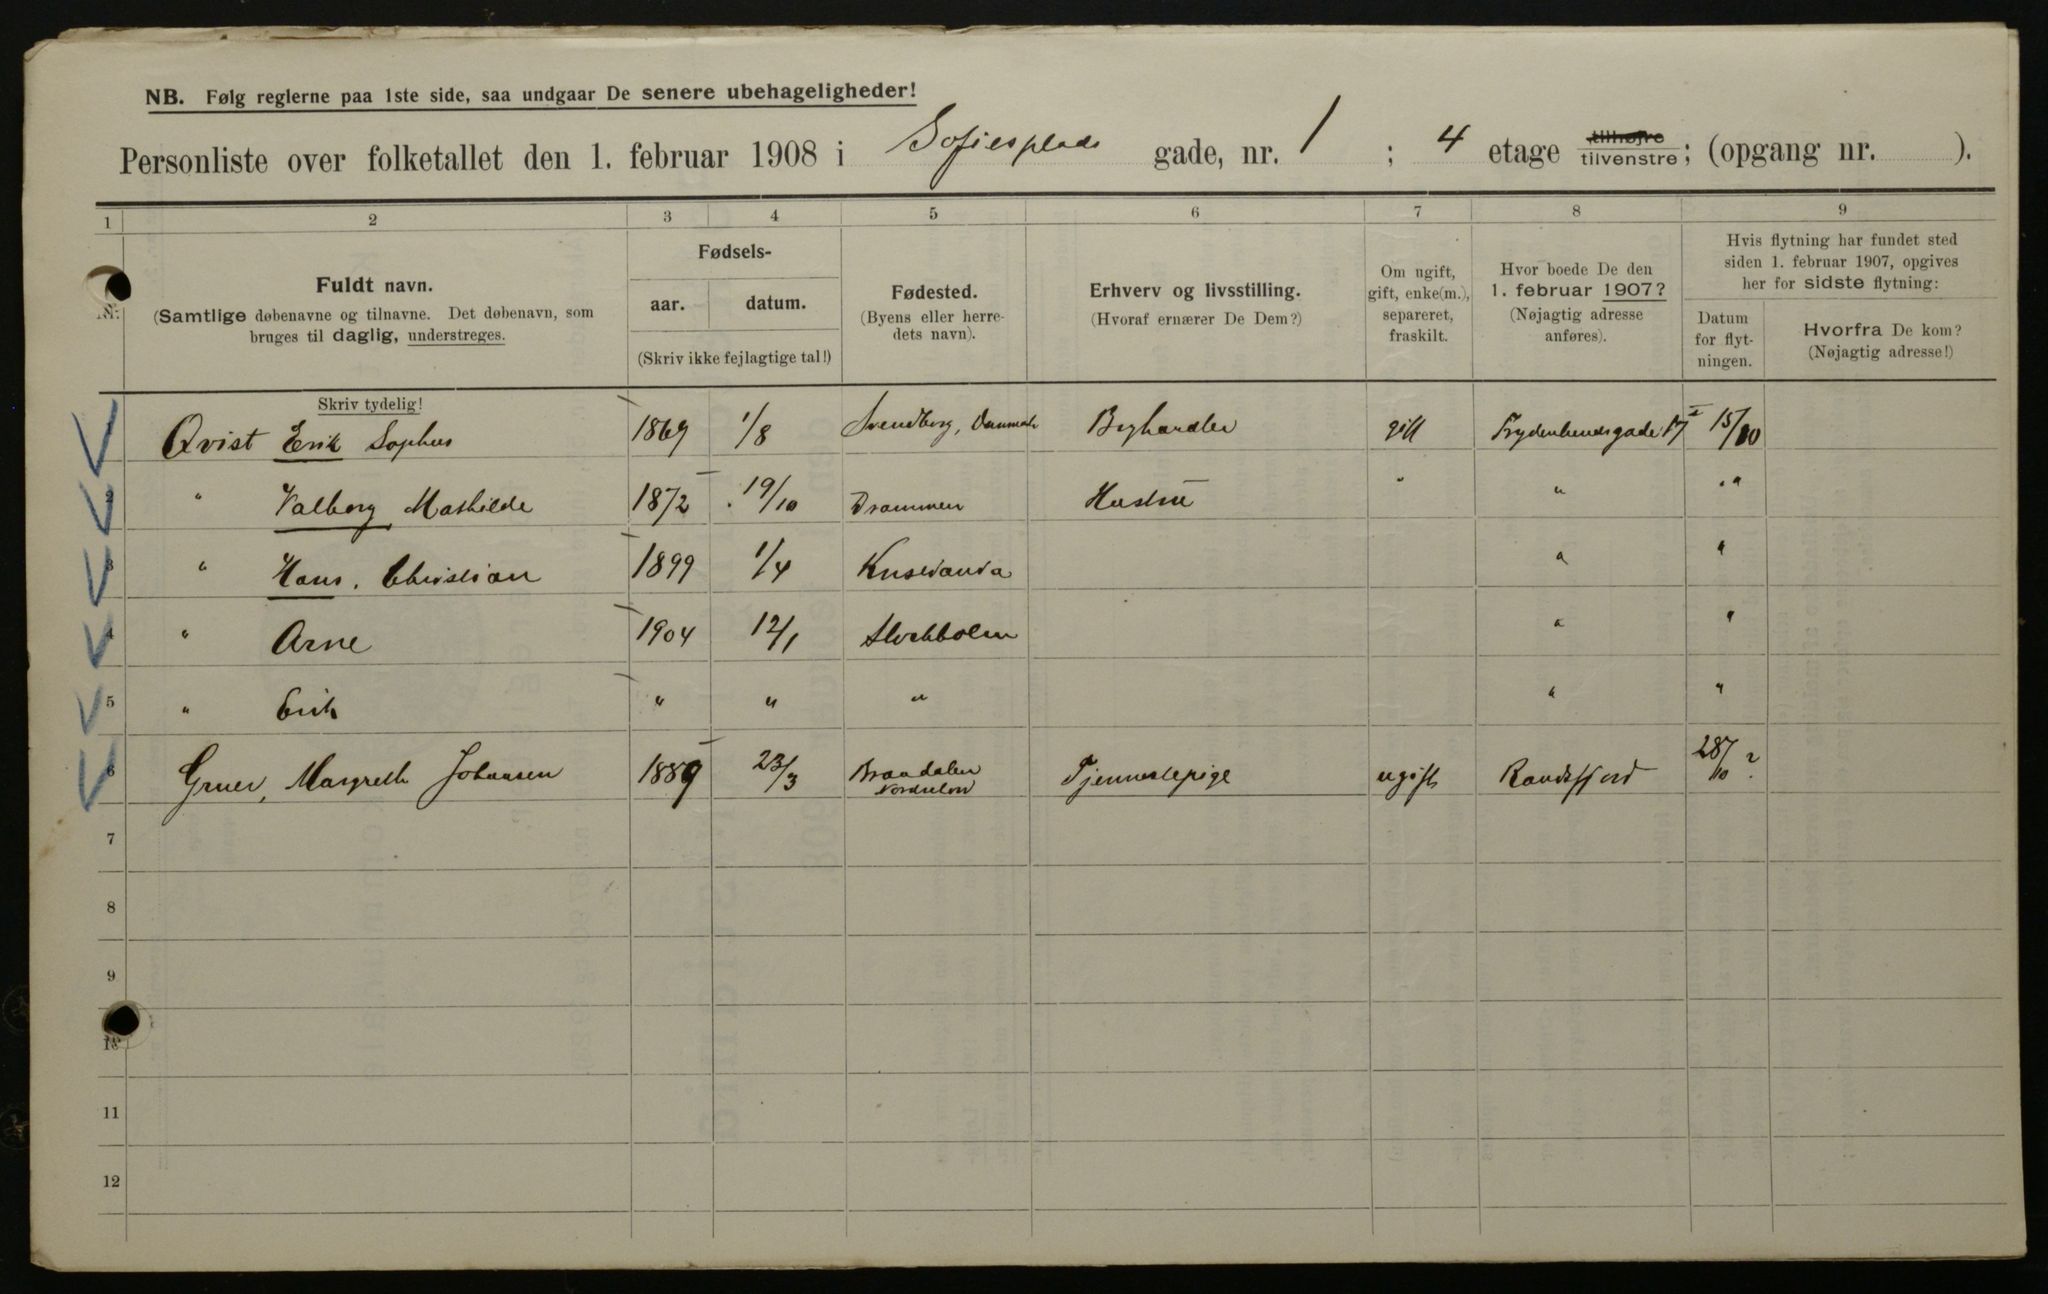 NB. Følg reglerne paa 1ste side, saa undgaar De senere ubehageligheder!
Personliste over folketallet den 1. februar 1908 i Sofiesplads gade, nr. 1 ; 4 etage tilhøjre tilvenstre; (opgang nr. ).
1 2 3 4 5 6 7 8 9
Nr. Fuldt navn. (Samtlige døbenavne og tilnavne. Det døbenavn, som bruges til daglig, understreges.
Skriv tydelig!
Fødsels-
aar. datum.
(Skriv ikke fejlagtige tal!)
Fødested. (Byens eller herredets navn).
Erhverv og livsstilling. (Hvoraf ernærer De Dem?)
Om ugift, gift, enke(m.), separeret, fraskilt.
Hvor boede De den 1. februar 1907? (Nøjagtig adresse anføres).
Hvis flytning har fundet sted siden 1. februar 1907, opgives her for sidste flytning:
Datum for flytningen.
Hvorfra De kom? (Nøjagtig adresse!)
Qvist Erik Sophus 1869 1/8 Svendborg, Danmark Boghandler gift Frydenlundsgade 17 I 15/10
2 " Valborg Mathilde 1872 19/10 Drammen Hustru " " "
3 " Hans Christian 1899 1/4 " "
4 " Arne 1904 12/1 Stockholm " "
5 " Erik " " " " "
6 Gruer, Margreth Johansen 1889 23/3 Braadalen Tjenestepige ugift Randsfjord 28/10 ?
7
8
9
10
11
12